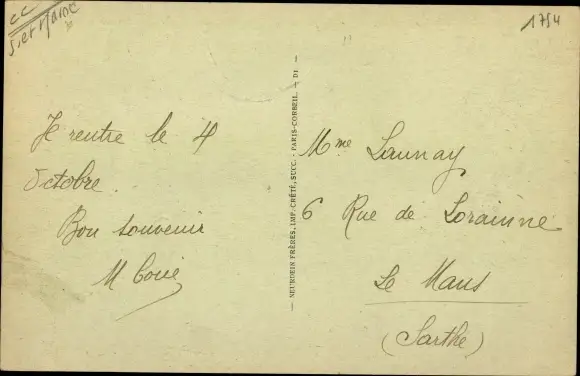 cc
S. et Marne
1754
Je rentre le 4
Octobre.
Bon souvenir
M
— NEURDEIN FRÈRES, IMP. CRÉTÉ, SUCC. - PARIS-CORBEIL. + DI —
Mme Launay
6 Rue de Lorainne
Le Mans
(Sarthe)